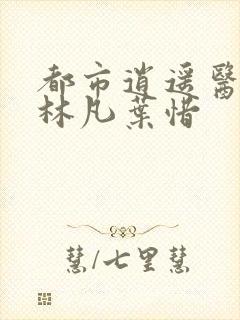 都市逍遥醫
林凡葉惜
慧/七里慧